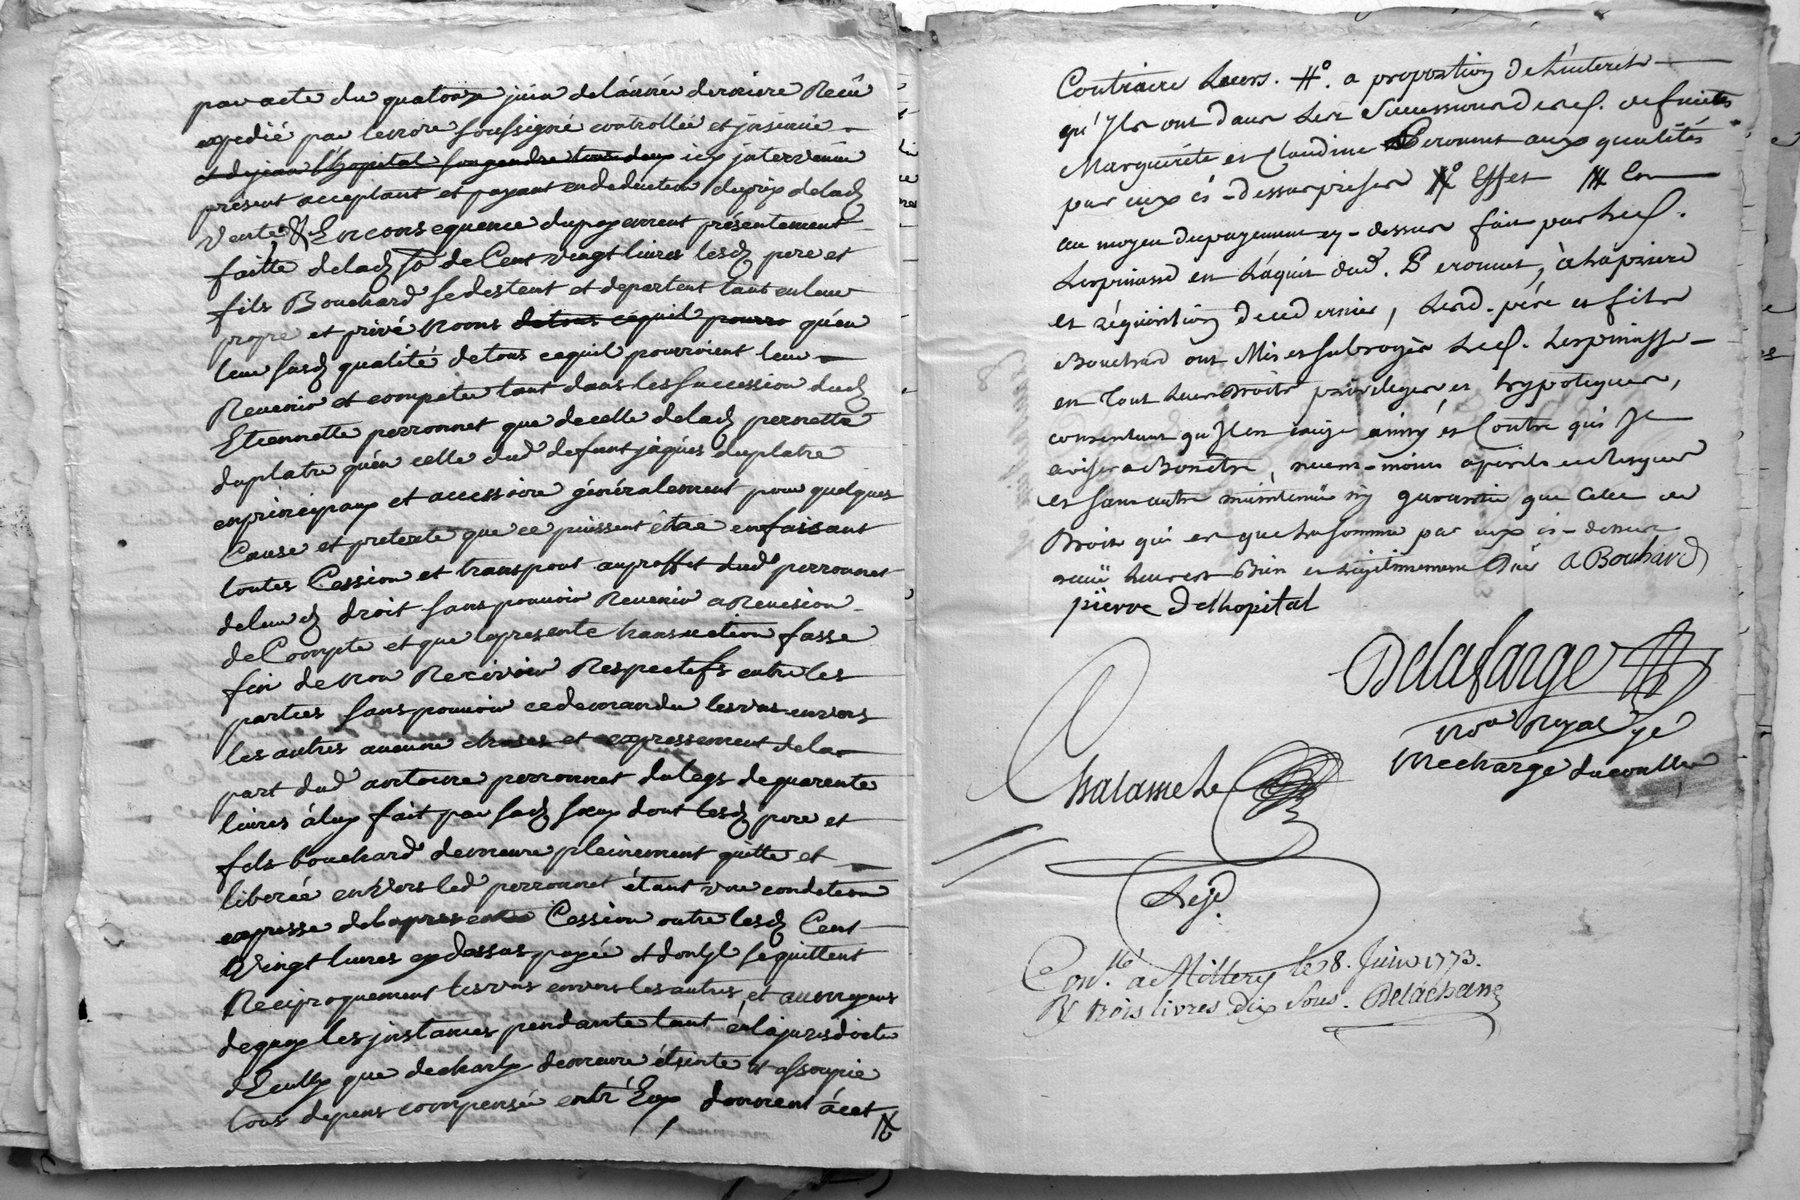 par acte du quatorze juin de lánnée derniere Reçû
expedié par lenore soussigné controllée et jnsinué
et dejean l'hopital son gendre tous deux icy jntervenu
présent acceptant et payant endeduction duprix deladᵗ
vente & Enconsequence dupayement présentement
faitte deladᵗ sᵉ de Cent vingt livres lesdᵗ pere et
fils Bouchard sedestent et departent tant enleur
propre et privé Noms detous cequil pourro qúen
leur susdᵗ qualité detous cequil pourroient leur
Revenir et competer tant dans les succession dudᵗ
Etiennette perronnet que decelle deladᵗ pernette
duplatre qúen celle dudᵗ defunt jaques duplatre
enprincipaux et accessoire généralement pour quelques
Cause et pretexte que ce puissent être enfaisant
toutes Cession et transport auproffet dudᵗ perronnet
deleurdᵗ droit sans pouvoir Revenir a Revision
de Compte et que lapresente transaction fasse
fin de Non Recevoir Respectifs entre les
parties sans pouvoir cedemander lesuns envers
les autres aucune choses et expressement dela
part dudᵗ antoine perronnet dulegs dequarente
livres áluy fait par sadᵗ soeur dont lesdᵗ pere et
fils bouchard demeure pleinement quitte et
liberée envers ledᵗ perronnet étant une condition
expresse delapresente Cession outre lesdᵗ Cent
Vingt livres cy dessus payée et dontjl sequittent
Reciproquement lesuns envers les autres, et aumoyens
dequoy les jnstances pendante tant én lajurisdicte
dEcully que decharly demeure éteinte et assoupie
tous depens compensée entré Eux donnent ácet
Contraire Leurs. #°. a proportion de Linterest
qu'Jls ont dans Les Successions desd. defuntes
Marguerite et Claudine Peronnet aux qualités
par eux ci-dessus prises #° Effet # Et
au moyen dupayement cy-dessus fait par Led.
Lespinasse en L'aquit dud. Peronnet, à la priere
et réquisition de ce dernier, Lesd. père et fils
Bouchard ont Mis et subrogés Led. Lespinasse
en tout leurs Droits privileges et hypoteques,
consentant qu'Jl en exige ainsy et Contre qui Jl
avisera Bonêtre, neans-moins a perils et risques
et sans autre maintenüe ny garantie que Celle de
Droit qui est que la somme par eux ci-dessus
reçuë leur est Bien et légitimement Dûe a Bouchard
pierre Delhopital
Delafarge
Noʳᵉ Royal
Chalamel
Conˡᵉ a Millery le 8. Juin 1773.
R trois livres dix sous. Delachana